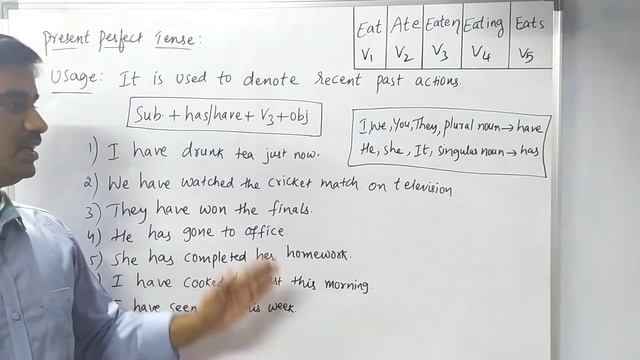 Present Perfect Tense:
Eat Ate Eaten Eating Eats
V1 V2 V3 V4 V5
Usage: It is used to denote recent past actions.
Sub. + has/have + V3 + obj
I, we, You, They, plural noun → have
He, she, It, singular noun → has
1) I have drunk tea just now.
2) We have watched the cricket match on television.
3) They have won the finals.
4) He has gone to office.
5) She has completed her homework.
I have cooked this morning.
I have seen this week.